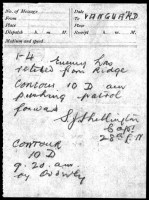 No. of Message
Date
From
To VANGUARD
Place
Place
Dispatch h. m.
Receipt h. m.
Medium and speed
1-4 Enemy has
retired from Ridge
Contour 10 D am
pushing patrol
forward
Capt
CONTOUR
10 D
9.20 am
by